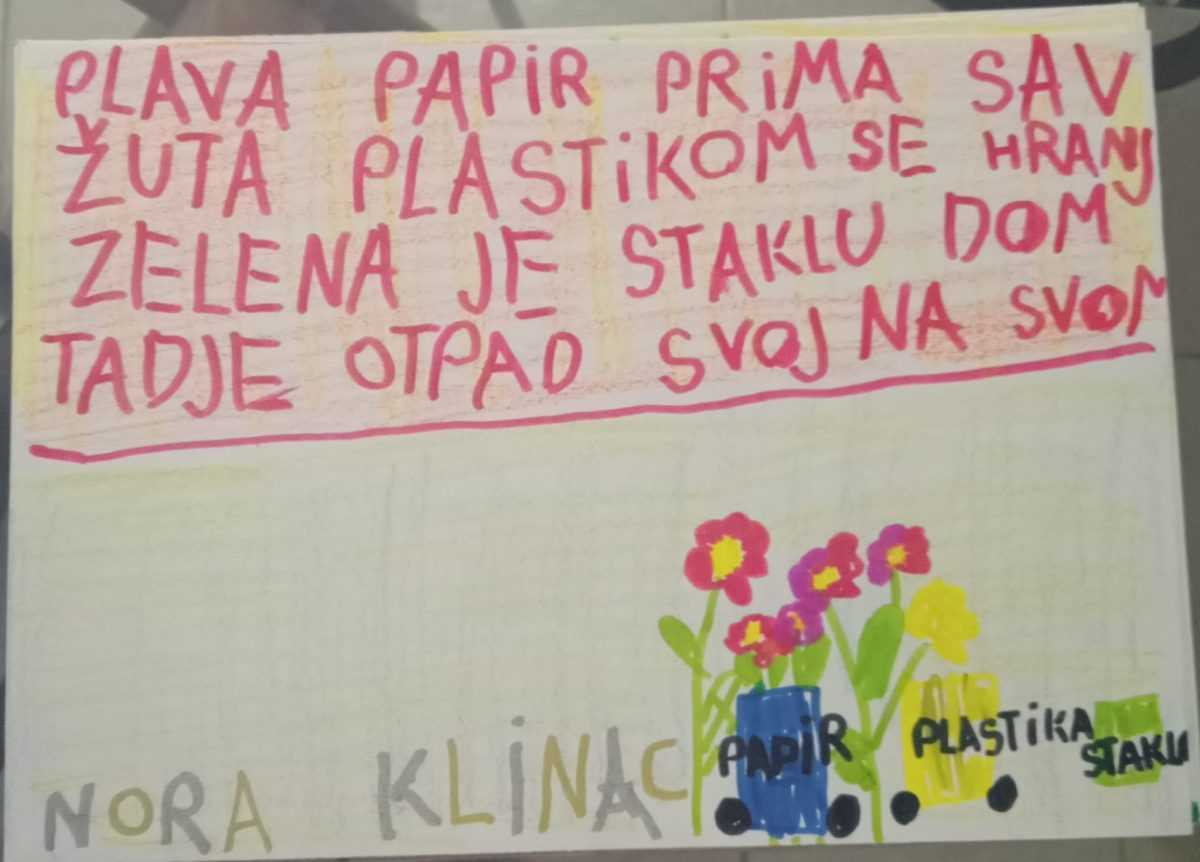 PLAVA PAPIR PRIMA SAV
ŽUTA PLASTIKOM SE HRANI
ZELENA JE STAKLU DOM
TADJE OTPAD SVOJ NA SVOM
NORA KLINAC
PAPIR
PLASTIKA
STAKLO